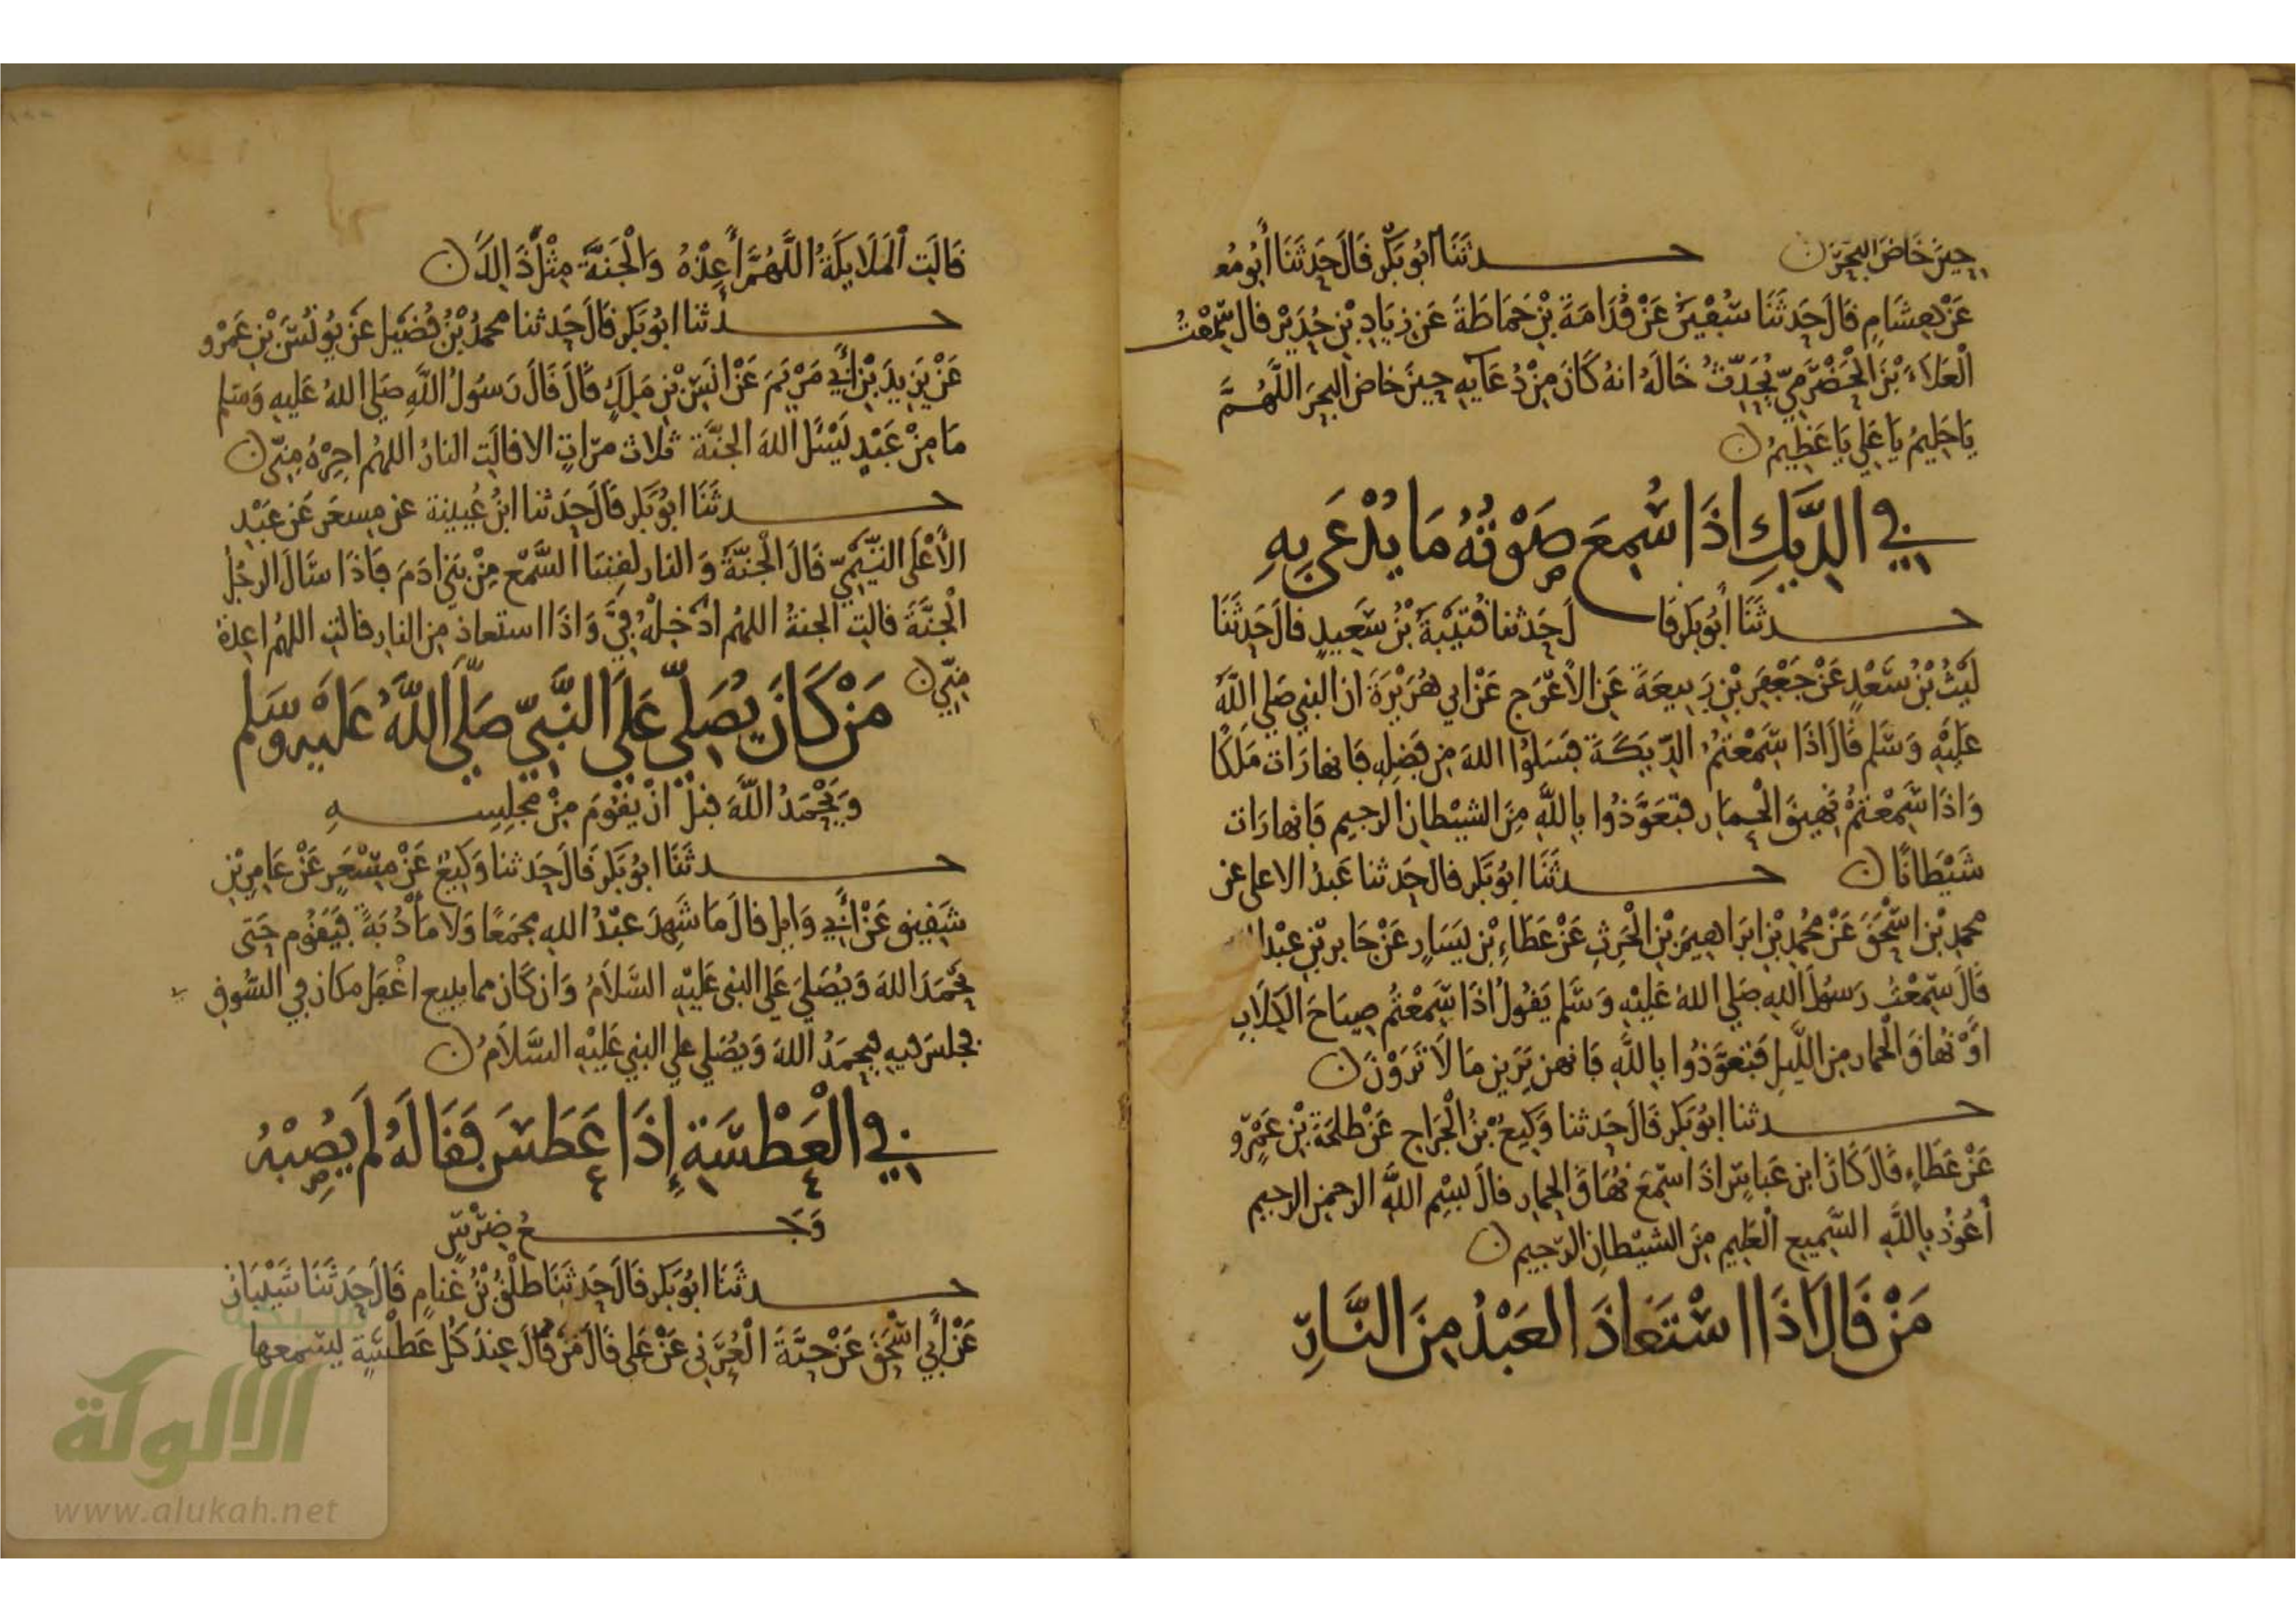 حِينَ خَاضَ البَحْرَ ۞ حـدثَنَا ابُو بَكْرٍ قَالَ حَدثَنَا أَبُو مُعـ
عَنْ هِشَامٍ قَالَ حَدثَنَا سُفْيَنُ عَنْ قُدَامَةَ بْنِ حَمَاطَةَ عَن زِيَادِ بْنِ حُدَيْرٍ قال سَمِعْتُ
الْعَلاَءَ بْنَ الْحَضْرَمِيّ يُحَدِّثُ خَالَهُ انهُ كَانَ مِنْ دُعَآيِهِ حِينَ خاض البحرَ اللَّهُمَّ
يَا حَلِيمُ يَا عَلِي يَا عَظِيمُ ۞
في الدِّيكِ اذَا سُمِعَ صَوْتُهُ مَا يُدْعَى بِهِ
حـدثَنَا أَبُو بَكرٍ قَالَ حَدثنا قُتَيْبَةُ بْنُ سَعِيدٍ قال حَدثَنَا
لَيْثُ بْنُ سَعْدٍ عَنْ جَعْفَرِ بْنِ رَبِيعَةَ عَنِ الأَعْرَجِ عَنْ ابي هُرَيْرَةَ ان النبي صَلى اللَّهُ
عَلَيْهِ وَسَلم قَالَ اذَا سَمِعْتُمُ الدِّيَكَةَ فَسَلُوا اللهَ مِن فَضلِهِ فَانها رَات مَلَكًا
وَاذَا سَمِعْتُمْ نَهِيقَ الْحِمَارِ فتَعَوَّذُوا بِاللَّهِ مِنَ الشيْطَانِ الرجيم فَانها رَات
شَيْطَانًا ۞ حـدثَنَا ابُو بَكر قال حَدثنا عَبدُ الاعلى عن
محمدِ بْنِ اسْحَقَ عَنْ مُحمدِ بْنِ ابرَاهِيمَ بْنِ الْحَرِثِ عَنْ عَطَاءِ بْنِ يَسَارٍ عَنْ جَابر بْنِ عَبْد ا
قَالَ سَمِعْتُ رَسُولَ اللهِ صَلى اللهُ عَلَيْهِ وَسَّلم يَقُولُ اذَا سَمِعْتُم صِيَاحَ الْكِلَابِ
اوْ نُهَاقَ الْحمار مِن اللَّيلِ فَتَعَوَّذُوا بِاللَّهِ فَانهن يَرَين مَا لاَ تَرَوْنَ ۞
حـدثنا ابُو بَكر قَالَ حَدثنا وَكِيعُ بْنُ الْجَرَاحِ عَنْ طَلحَةَ بْنِ عَمْرٍو
عَنْ عَطَاءٍ قَالَ كَانَ ابن عَباسٍ اذَا سَمِعَ نُهَاقَ الْحِمارِ قالَ بِسْمِ اللَّهِ الرحمن الرحيم
أَعُوذُ بِاللَّهِ السَّمِيعِ الْعَلِيمِ مِنَ الشيْطَانِ الرَّجيمِ ۞
مَنْ قَالَ اذَا اسْتَعَاذَ العَبْدُ مِنَ النَّارِ
قَالَتِ الْمَلَايِكَةُ اللَّهُمَّ أَعِذْهُ وَالْجَنَّةَ مِثْلُ ذَالِكَ ۞
حـدثنا ابُو بَكر قَالَ حَدثنا محمدُ بْنُ فُضَيل عَن يُونُسَ بْنِ عَمْرو
عَنْ يَزِيدَ بْنِ أَبِي مَرْيَمَ عَنْ انَسِ بْنِ مَلِكٍ قَالَ قَالَ رَسُولُ اللَّهِ صَلى اللهُ عَليهِ وَسَلم
مَا مِنْ عَبْدٍ يَسْئَلُ اللهَ الجَنَّةَ ثَلاث مرّاتٍ الا قالتِ النارُ اللهُم اجِرْهُ مِنّي ۞
حـدثَنَا ابُو بَكر قَالَ حَدثنا ابْنُ عُيينة عَن مِسعَرٍ عَن عَبْدِ
الأعْلَى التَّيْمِيّ قَالَ الْجَنَّةُ وَالنار لُقِّنتا السَّمْعَ مِنْ بَنِي ادَمَ فَاذَا سَالَ الرجُلُ
الْجَنَّةَ قالتِ الجنةُ اللهُم ادْخِلْهُ فِيَّ وَاذَا استعاذ مِنَ النارِ قالتِ اللهُم اعِذهُ
مِنّي ۞
مَنْ كَانَ يُصَلّي عَلَى النَّبِيّ صَلَّى اللَّهُ عَلَيْهِ وَسَلم
وَيَحْمَدُ اللَّهَ قَبْلَ انْ يَقُومَ مِنْ مَجلِسِـهِ
حـدثَنَا ابُو بَكر قَالَ حَدثنا وَكِيعٌ عَنْ مِسْعَرٍ عَنْ عَامِرِ بْنِ
شَقِيقٍ عَنْ أَبِي وَايِلٍ قالَ مَا شَهِدَ عَبْدُ اللهِ مَجمَعًا وَلا مَأْدُبَةً فَيَقُوم حَتى
يَحْمَدَ اللهَ وَيُصَلِيَ عَلى النبي عَلَيْهِ السَّلاَمُ وَان كَانَ مما يبيع اغْفَل مكان في السُّوقِ
فيجلسَ فيهِ فيحمَدُ اللهَ وَيُصَلي على النبي عَلَيْهِ السَّلاَمُ ۞
في الْعَطْسَةِ إِذَا عَطَسَ فَقَالَهُ لَم يُصِبْهُ
وَجَـعُ ضِرْسٍ
حـدثَنَا ابُو بَكر قَالَ حَدثَنَا طَلْقُ بْنُ غَنامٍ قَالَ حَدثَنَا شَيْبَان
عَنْ أَبِي اسْحَقَ عَنْ حَبَّةَ الْعُرَنِي عَنْ عَلي قَالَ مَنْ قَالَ عِندَ كُلِّ عَطْسَةٍ يسمعها
شبكة
الألوكة
www.alukah.net